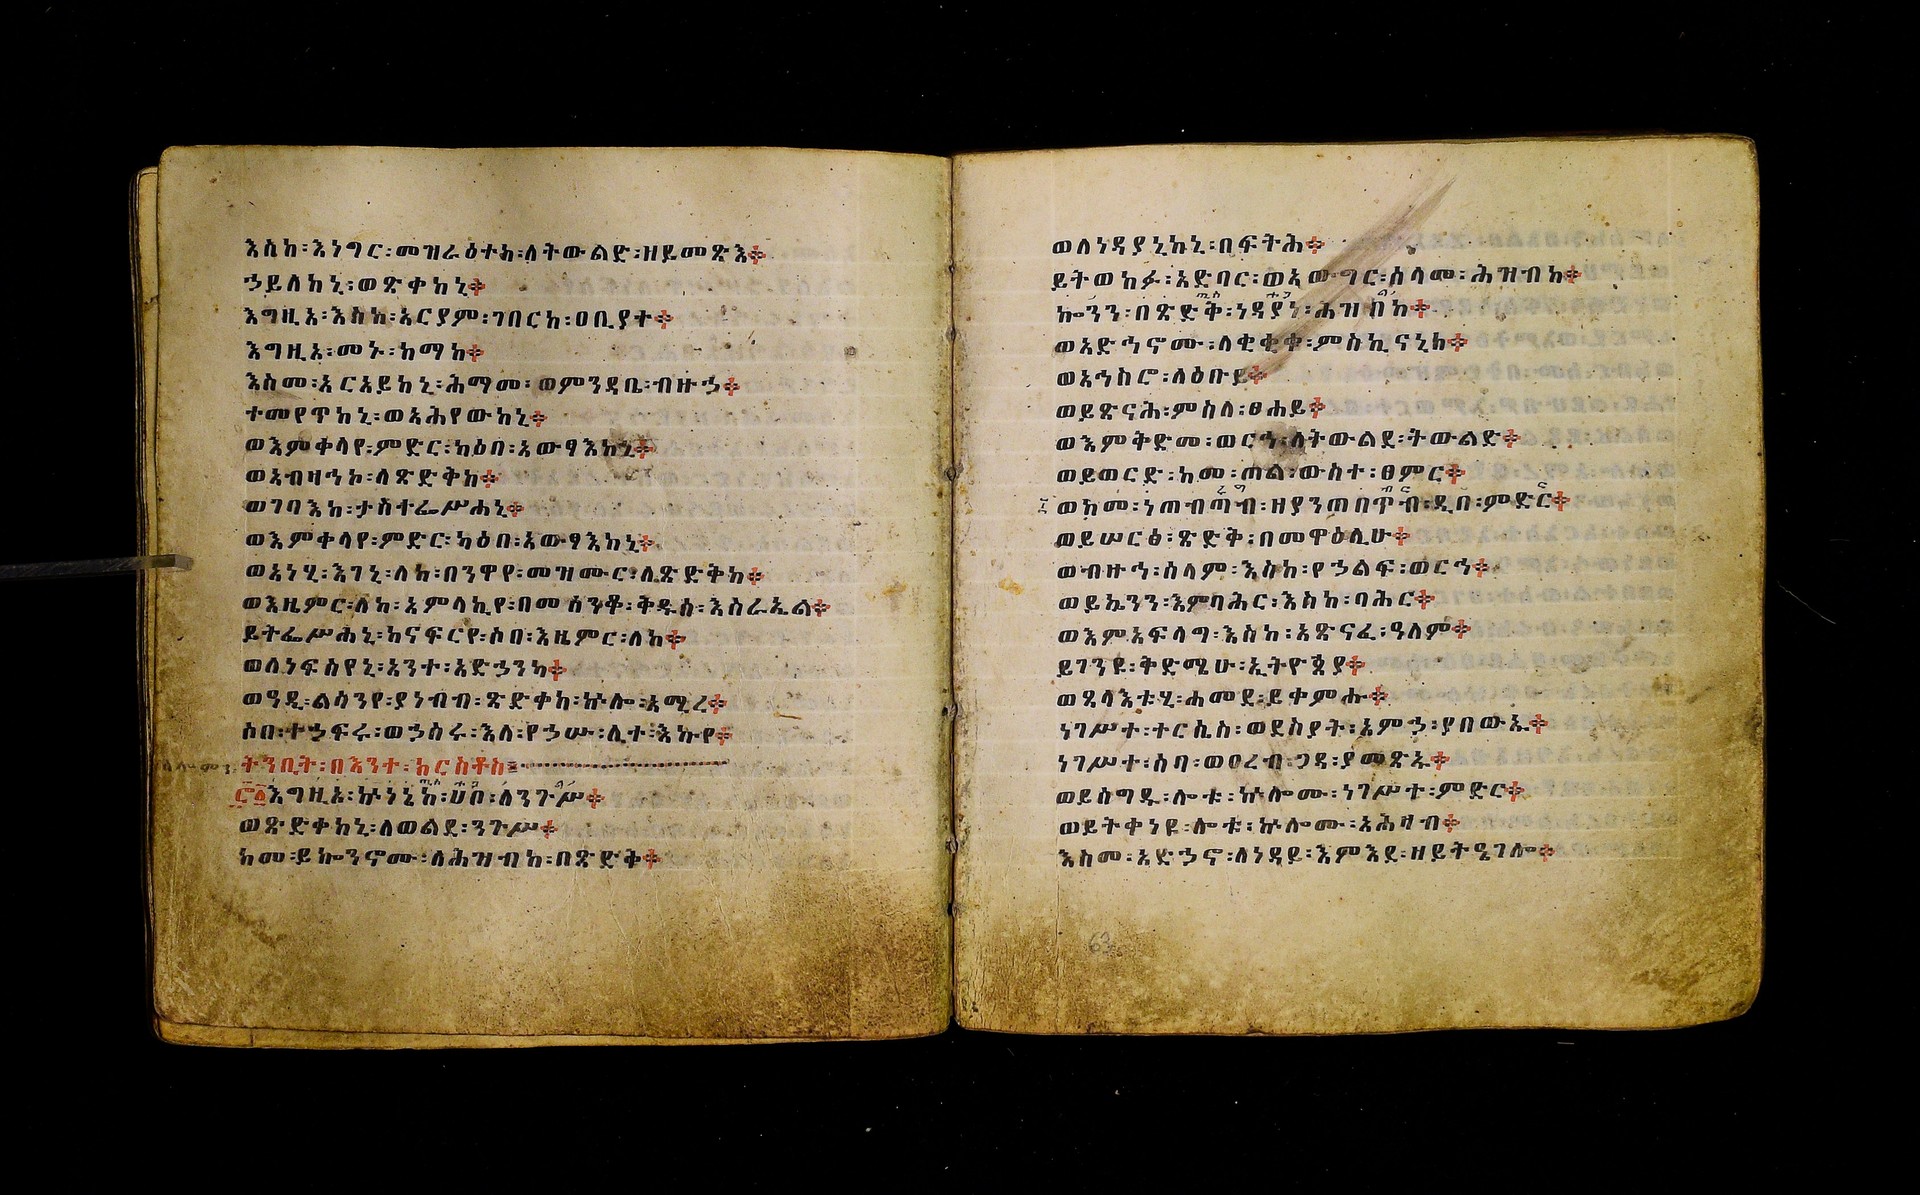 እስከ፡እነግር፡መዝራዕተከ፡ለትውልድ፡ዘይመጽእ፨
ኃይለከኒ፡ወጽቀከኒ፨
እግዚአ፡እስከ፡አርያም፡ገበርከ፡ዐቢያተ፨
እግዚአ፡መኑ፡ከማከ፨
እስመ፡አርአይከኒ፡ሕማመ፡ወምንዳቤ፡ብዙኃ፨
ተመየጥከኒ፡ወአሕየውከኒ፨
ወእምቀላየ፡ምድር፡ካዕበ፡አውፃእከኒ፨
ወአብዛኅኮ፡ለጽድቅከ፨
ወገባእከ፡ታስተፌሥሐኒ፨
ወእምቀላየ፡ምድር፡ካዕበ፡አውፃእከኒ፨
ወአነሂ፡እገኒ፡ለከ፡በንዋየ፡መዝሙር፡ለጽድቅከ፨
ወእዜምር፡ለከ፡አምላኪየ፡በመሰንቆ፡ቅዱስ፡እስራኤል፨
ይትፌሥሐኒ፡ከናፍርየ፡ሰበ፡እዜምር፡ለከ፨
ወለነፍስየኒ፡አንተ፡አድኃንካ፨
ወዓዲ፡ልሳንየ፡ያነብብ፡ጽድቀከ፡ኵሎ፡አሚረ፨
ሰበ፡ተኃፍሩ፡ወኃስሩ፡እለ፡የኃሡ፡ሊተ፡እኩየ፨
ትንቢት፡በእንተ፡ክርስቶስ፡
እግዚአ፡ኵነኔከ፡ሀበ፡ለንጉሥ፨
ወጽድቀከኒ፡ለወልደ፡ንጉሥ፨
ከመ፡ይኰንኖሙ፡ለሕዝብከ፡በጽድቅ፨
ወለነዳያኒከኒ፡በፍትሕ፨
ይትወከፉ፡አድባር፡ወአውግር፡ሰላመ፡ሕዝብከ፨
ኰንን፡በጽድቅ፡ነዳያነ፡ሕዝብከ፨
ወአድኅኖሙ፡ለደቂቀ፡ምስኪናኒከ፨
ወአኅስሮ፡ለዕቡይ፨
ወይጽናሕ፡ምስለ፡ፀሐይ፨
ወእምቅድመ፡ወርኅ፡ለትውልደ፡ትውልድ፨
ወይወርድ፡ከመ፡ጠል፡ውስተ፡ፀምር፨
ወከመ፡ነጠብጣብ፡ዘያንጠበጥብ፡ዲበ፡ምድር፨
ወይሠርፅ፡ጽድቅ፡በመዋዕሊሁ፨
ወብዙኅ፡ሰላም፡እስከ፡የኃልፍ፡ወርኅ፨
ወይኴንን፡እምባሕር፡እስከ፡ባሕር፨
ወእምአፍላግ፡እስከ፡አጽናፈ፡ዓለም፨
ይገንዩ፡ቅድሜሁ፡ኢትዮጵያ፨
ወጸላእቱሂ፡ሐመደ፡ይቀምሑ፨
ነገሥተ፡ተርሴስ፡ወደሰያት፡አምኃ፡ያበውኡ፨
ነገሥተ፡ሳባ፡ወዐረብ፡ጋዳ፡ያመጽኡ፨
ወይሰግዱ፡ሎቱ፡ኵሎሙ፡ነገሥተ፡ምድር፨
ወይትቀነዩ፡ሎቱ፡ኵሎሙ፡አሕዛብ፨
እስመ፡አድኃኖ፡ለነዳይ፡እምእደ፡ዘይትዔገሎ፨
63